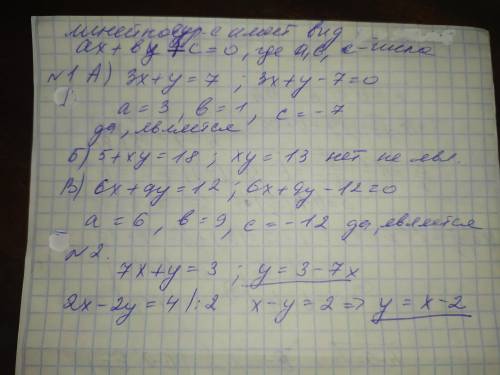 имеет вид
ax + by + c = 0, где a, c, c - числа
№1 А) 3x + y = 7 ; 3x + y - 7 = 0
a = 3, b = 1, c = -7
да, является
Б) 5 + xy = 18 ; xy = 13 нет не явл.
В) 6x + 9y = 12 ; 6x + 9y - 12 = 0
a = 6, b = 9, c = -12 да, является
№2.
7x + y = 3 ; y = 3 - 7x
2x - 2y = 4 /:2 x - y = 2 => y = x - 2